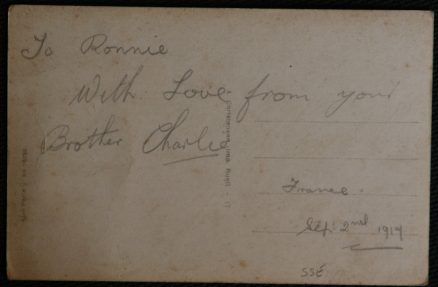 To Ronnie
With Love from your
Brother Charlie
France.
Sep. 2nd 1914
SSE